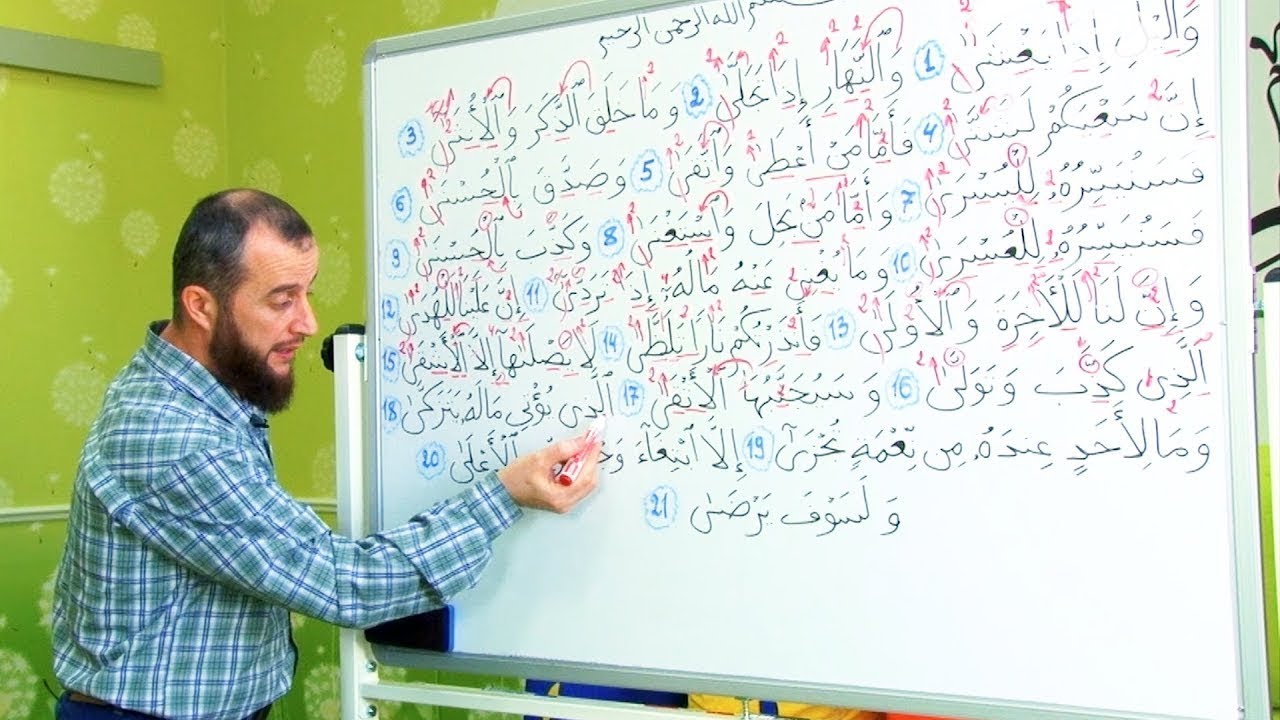 بسم الله الرحمن الرحيم
وَٱلَّيْلِ إِذَا يَغْشَىٰ 1 وَٱلنَّهَارِ إِذَا تَجَلَّىٰ 2 وَمَا خَلَقَ ٱلذَّكَرَ وَٱلْأُنثَىٰ 3
إِنَّ سَعْيَكُمْ لَشَتَّىٰ 4 فَأَمَّا مَنْ أَعْطَىٰ وَٱتَّقَىٰ 5 وَصَدَّقَ بِٱلْحُسْنَىٰ 6
فَسَنُيَسِّرُهُۥ لِلْيُسْرَىٰ 7 وَأَمَّا مَنۢ بَخِلَ وَٱسْتَغْنَىٰ 8 وَكَذَّبَ بِٱلْحُسْنَىٰ 9
فَسَنُيَسِّرُهُۥ لِلْعُسْرَىٰ 10 وَمَا يُغْنِى عَنْهُ مَالُهُۥٓ إِذَا تَرَدَّىٰٓ 11 إِنَّ عَلَيْنَا لَلْهُدَىٰ 12
وَإِنَّ لَنَا لَلْأَخِرَةَ وَٱلْأُولَىٰ 13 فَأَنذَرْتُكُمْ نَارًا تَلَظَّىٰ 14 لَا يَصْلَىٰهَآ إِلَّا ٱلْأَشْقَى 15
ٱلَّذِى كَذَّبَ وَتَوَلَّىٰ 16 وَسَيُجَنَّبُهَا ٱلْأَتْقَى 17 ٱلَّذِى يُؤْتِى مَالَهُۥ يَتَزَكَّىٰ 18
وَمَا لِأَحَدٍ عِندَهُۥ مِن نِّعْمَةٍ تُجْزَىٰٓ 19 إِلَّا ٱبْتِغَآءَ ٱلْأَعْلَىٰ 20
وَلَسَوْفَ يَرْضَىٰ 21